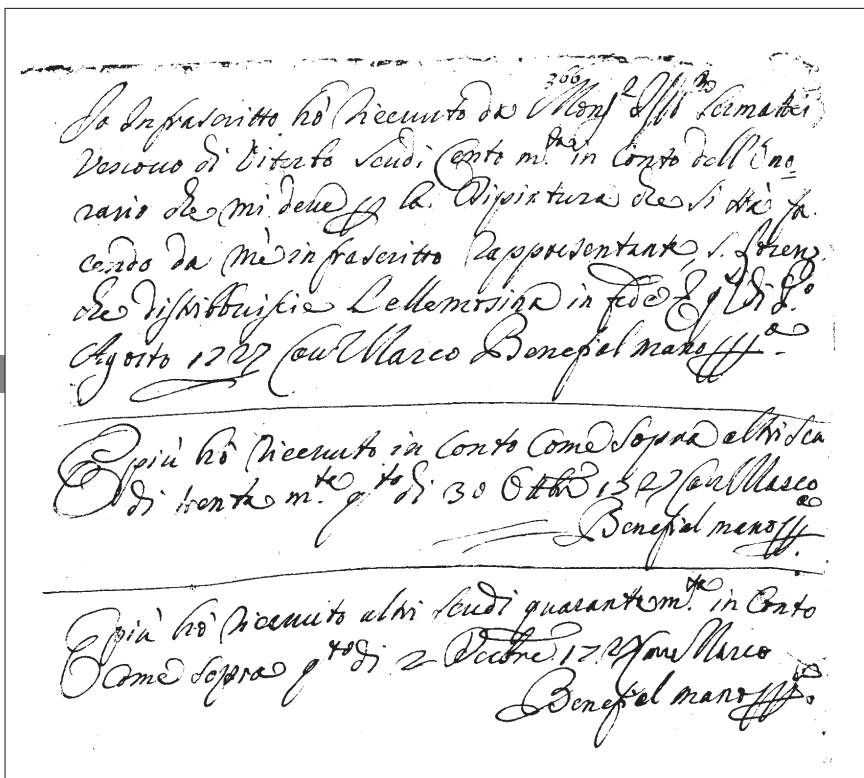 366
Io Infrascritto hò riceuuto da Monsr Illmo Sermattei
Vescouo di Viterbo scudi Cento mta in Conto dell'Ono=
rario che mi deue p la Dipintura che si stà fa
cendo da mè infrascritto rappresentante, S. Loren:
che distribbuiscie Lellemosina in fede q di P.o
Agosto 1727 Cau Marco Benefial mano ppa
E più hò riceuuto in Conto Come Sopra altri scu
di trenta mte qto di 30 Ottbre 1727 Cau Marco
Benefial mano ppa
E più hò riceuuto altri scudi quaranta mta in Conto
Come Sopra qto di 2 Xcbre 1727 Cau Marco
Benefial mano ppa